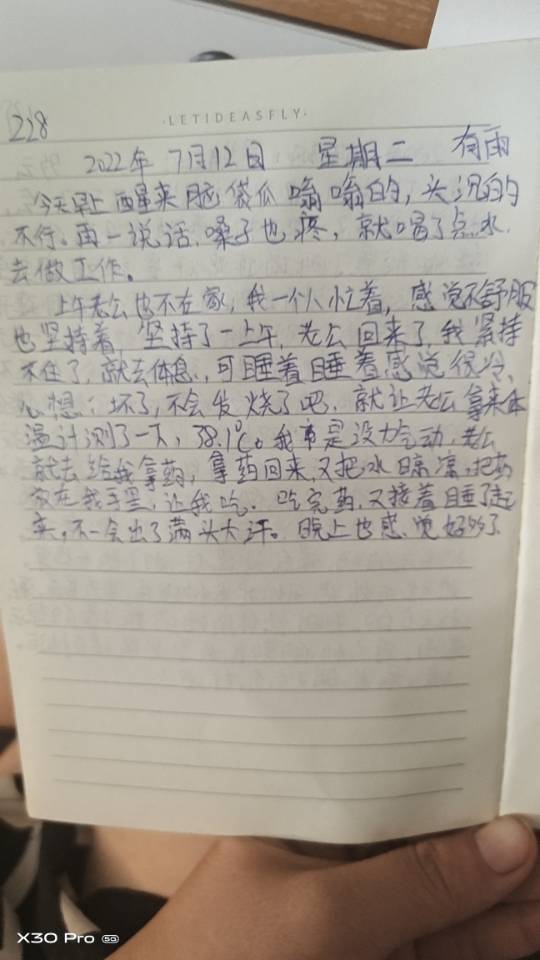 228
·LETIDEASFLY·
2022年 7月12日 星期二 有雨
今天早上 醒来 脑袋瓜 嗡嗡的, 头沉的
不行。再一说话, 嗓子也疼, 就喝了点水,
去做工作。
上午老公也不在家, 我一个人忙着, 感觉不舒服
也坚持着, 坚持了一上午, 老公回来了, 我坚持
不住了, 就去休息, 可睡着睡着感觉很冷,
心想: 坏了, 不会发烧了吧, 就让老公拿来体
温计测了一下, 38.1℃。我真是没力气动, 老公
就去给我拿药, 拿药回来, 又把水晾凉, 把药
放在我手里, 让我吃. 吃完药, 又接着睡了起
来, 不一会出了满头大汗。 晚上也感觉好多了
X30 Pro 5G